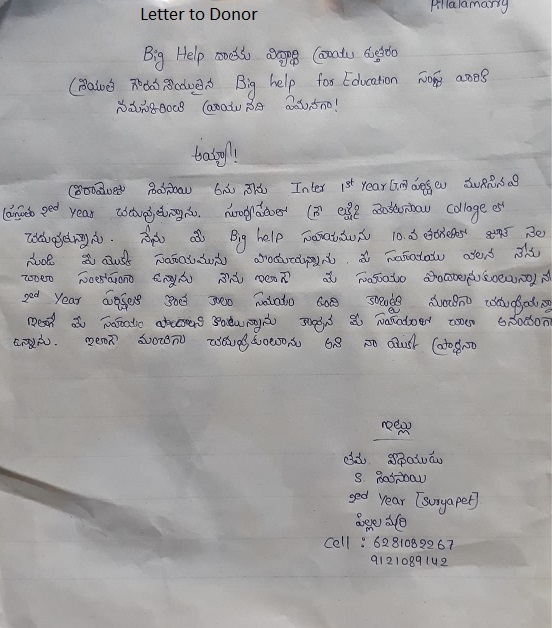 Pillalamarry
Letter to Donor
Big Help దాతకు విద్యార్థి వ్రాయు ఉత్తరం
గౌరవనీయులైన Big help for Education సంస్థ వారికి
నమస్కరించి వ్రాయునది ఏమనగా!
అయ్యా!
శివసాయి అను నేను Inter 1st Year పరీక్షలు ముగిసినవి
ప్రస్తుతం 2ed Year చదువుతున్నాను. సూర్యాపేటలో శ్రీ లక్ష్మి వెంకటసాయి Collage లో
చదువుతున్నాను. నేను మీ Big help సహాయమును 10.వ తరగతిలో జూన్ నెల
నుండి మీ యొక్క సహాయమును పొందుచున్నాను. మీ సహాయము వలన నేను
చాలా సంతోషంగా ఉన్నాను నేను ఇలాగే మీ సహాయం పొందాలనుకుంటున్నాను
2ed Year పరీక్షలకి కొంత కాలం సమయం ఉంది కాబట్టి మంచిగా చదువుతున్నా
ఇలాగే మీ సహాయం పొందాలని కొంటున్నాను కావున మీ సహాయంతో చాలా ఆనందంగా
ఉన్నాను. ఇలాగే మంచిగా చదువుకుంటాను అని నా యొక్క ప్రార్థన
ఇట్లు
తమ విధేయుడు
S. శివసాయి
2ed Year [Suryapet]
పిల్లలమర్రి
Cell : 6281082267
9121089142